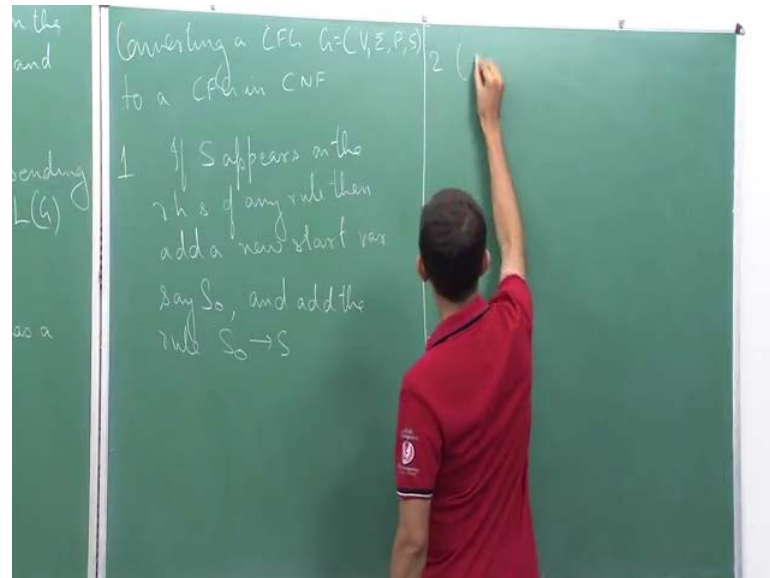 n the
and
sending
L(G)
as a
Converting a CFG G=(V,Σ,P,S)
to a CFG in CNF
1 If S appears on the
rhs of any rule then
add a new start var
say S₀, and add the
rule S₀→S
2 (